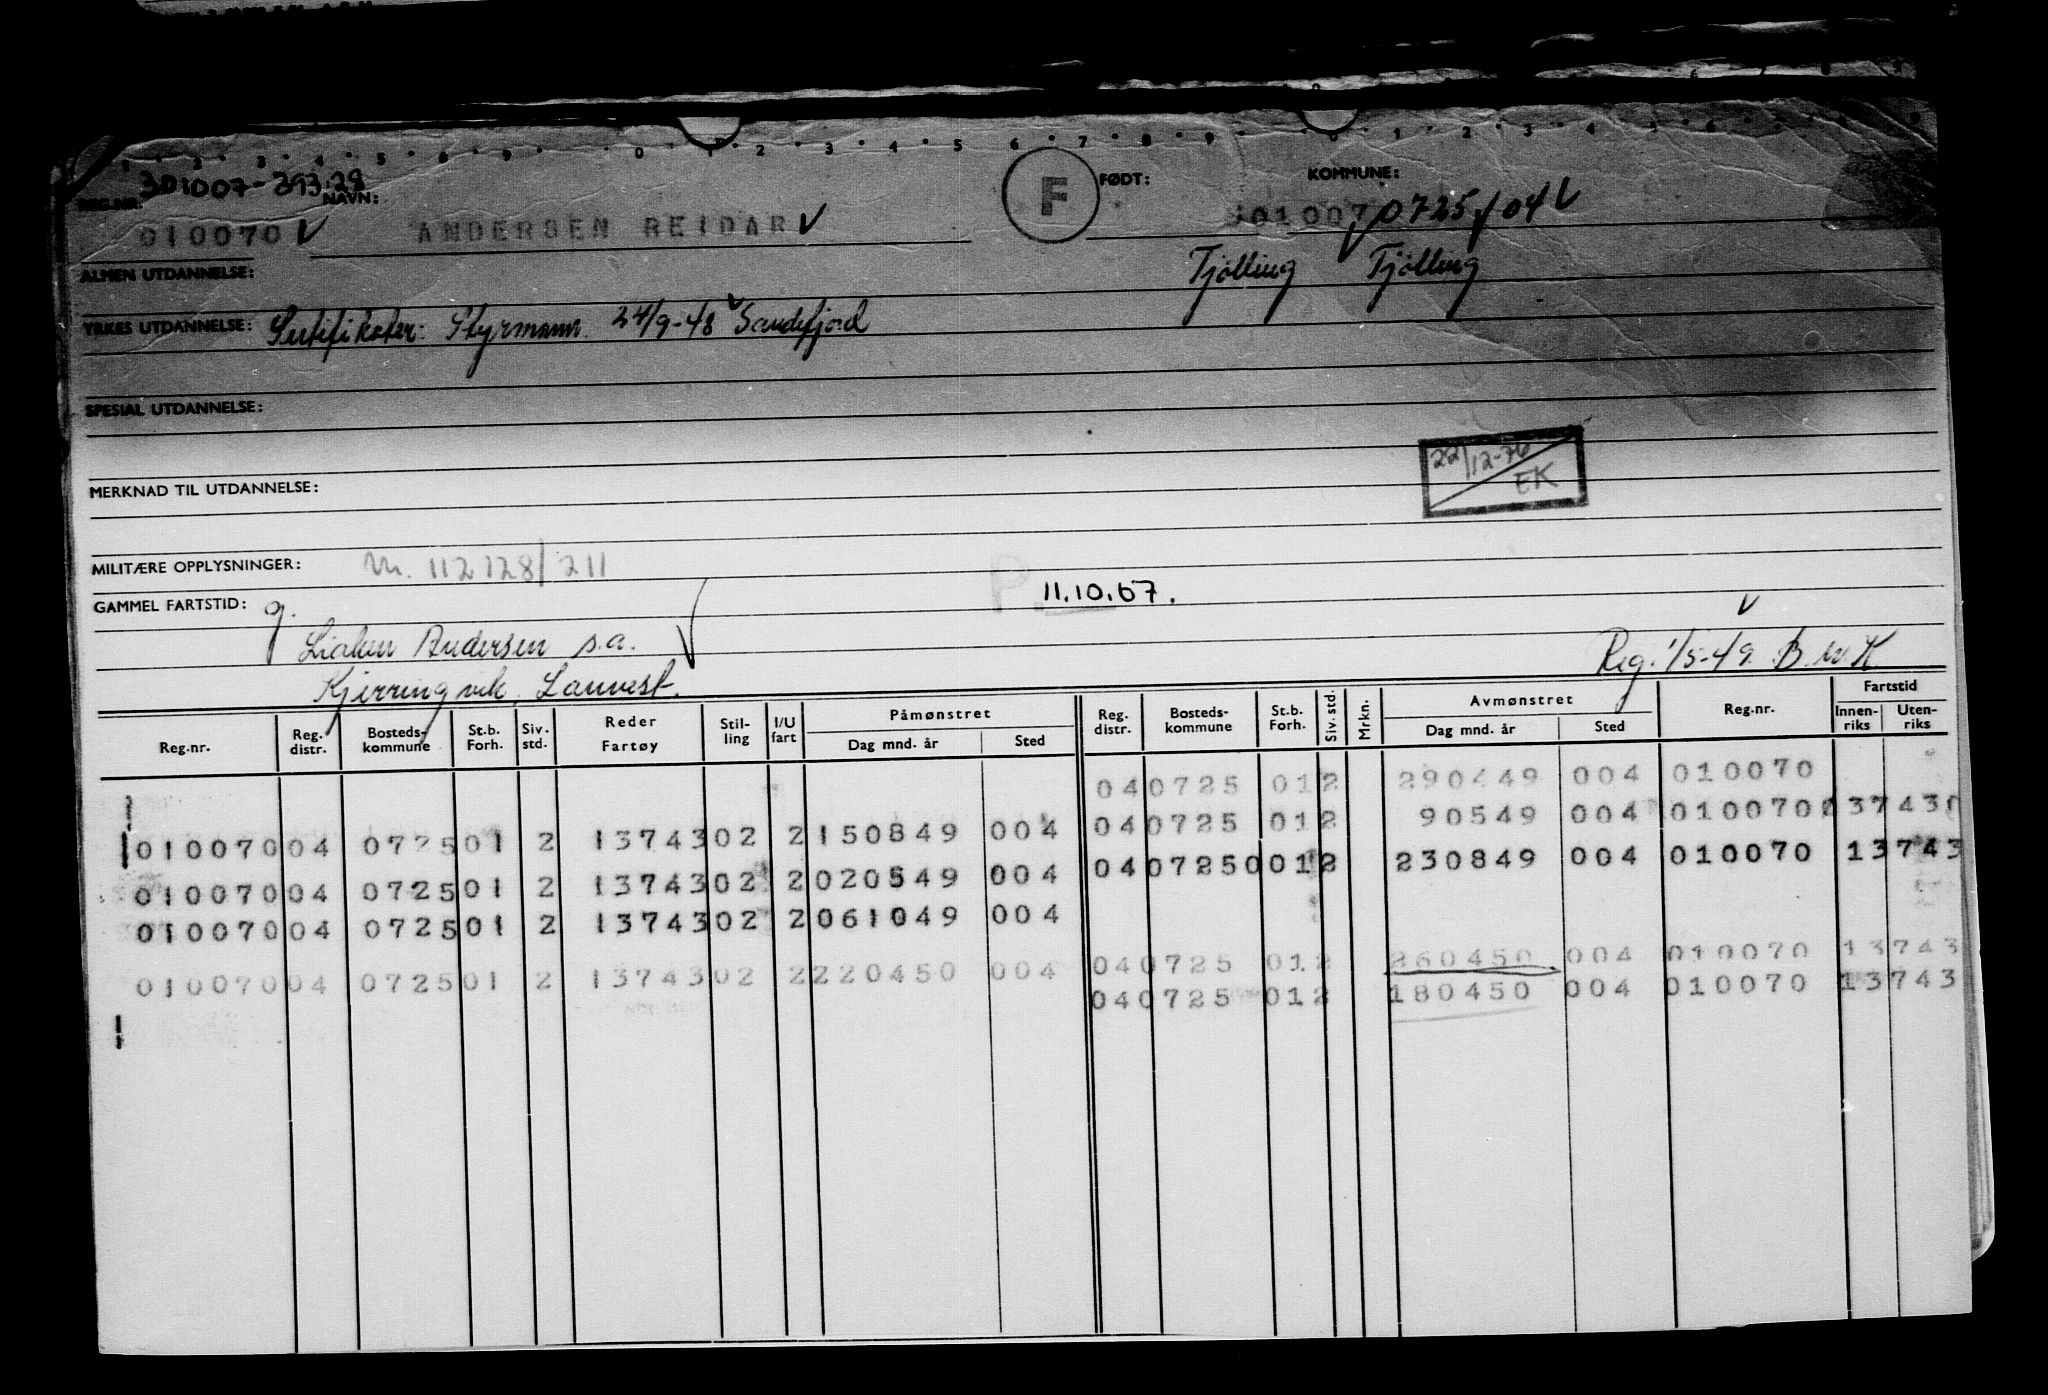 301007-39328
REG.NR. NAVN: F FØDT: KOMMUNE:
010070 ANDERSEN REIDAR 301007 0725/04
ALMEN UTDANNELSE: Tjølling Tjølling
YRKES UTDANNELSE: Sertifikater: Styrmann 24/9-48 Sandefjord
SPESIAL UTDANNELSE:
22/12-76
EK
MERKNAD TIL UTDANNELSE:
MILITÆRE OPPLYSNINGER: M. 112128/211
P. 11.10.67.
GAMMEL FARTSTID: g.
Andersen s.a.
Reg. 1/5-49. B. M K
Kjerringvik, Lauvest.
Reg.nr. Reg. distr. Bosteds- kommune St.b. Forh. Siv. std. Reder Fartøy Stil- ling I/U fart Påmønstret Dag mnd. år Sted Reg. distr. Bosteds- kommune St.b. Forh. Siv. std. Mrkn. Avmønstret Dag mnd. år Sted Reg.nr. Fartstid Innen- riks Uten- riks
04 0725 01 2 290449 004 010070
04 0725 01 2 90549 004 010070 137430
010070 04 0725 01 2 13743 02 2 150849 004
04 07250 01 2 230849 004 010070 13743
010070 04 0725 01 2 13743 02 2 020549 004
010070 04 0725 01 2 13743 02 2 061049 004
04 0725 01 2 260450 004 010070 13743
010070 04 0725 01 2 13743 02 2 220450 004
04 0725 01 2 180450 004 010070 13743